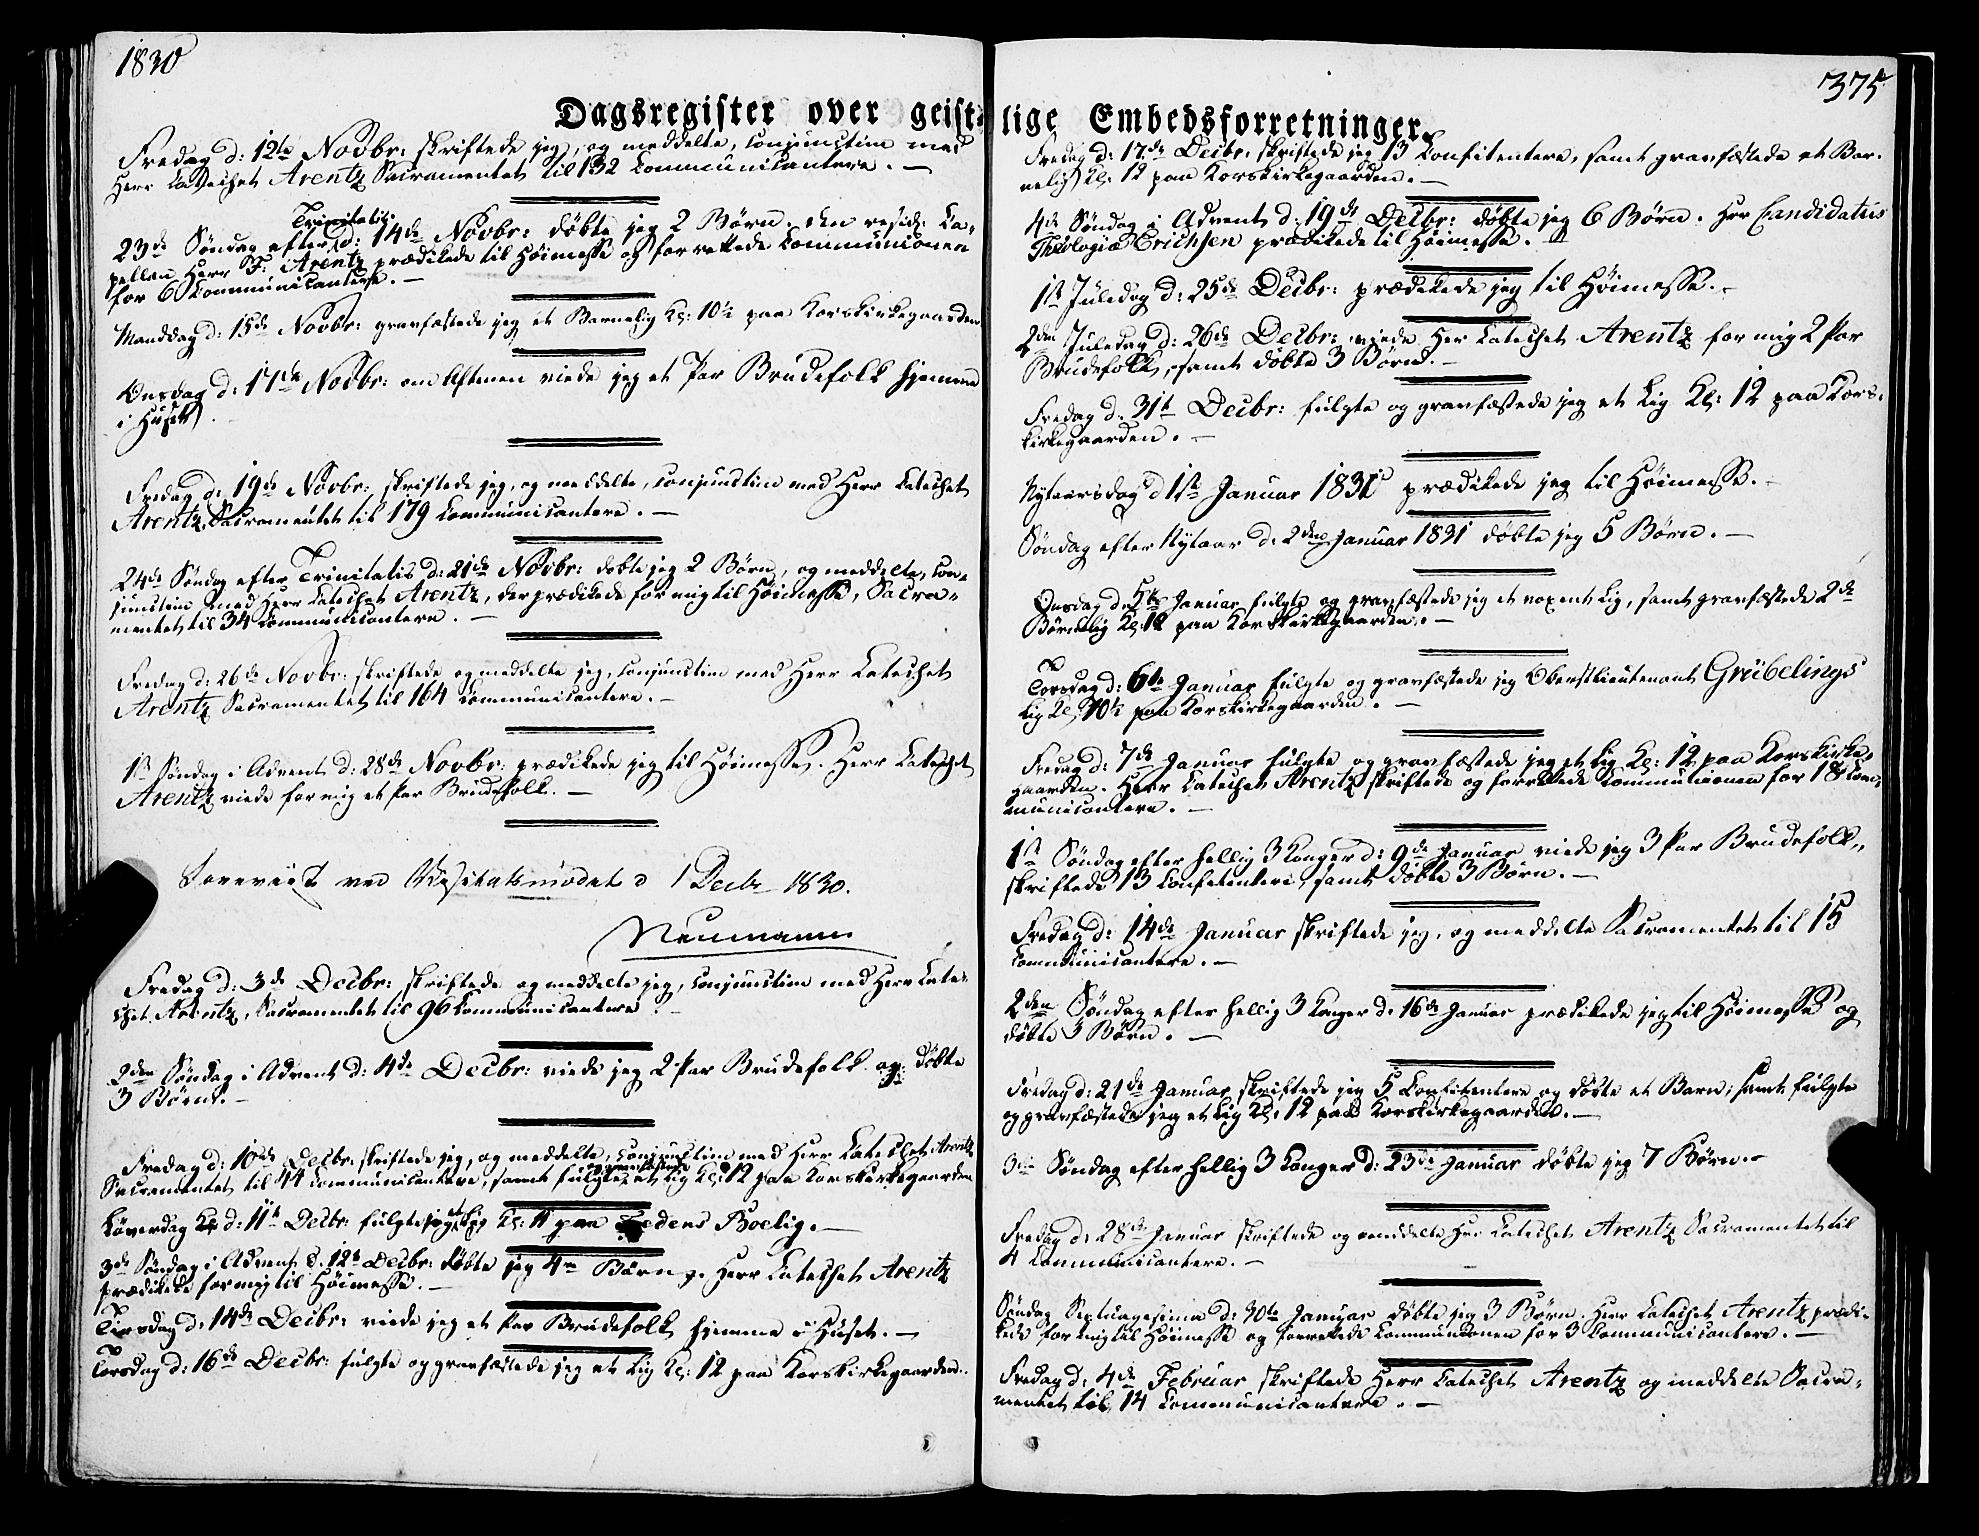 1830
375
Dagsregister over geist-lige Embedsforretninger.
Fredag d: 12te Novbr: skriftede jeg, og meddelte, conjunctim med
Herr Catechet Arentz Sacramentet til 132 Communicantere. —
Trinitatis
23de Søndag efter d: 14de Novbr: døbte jeg 2 Børn. Den resid: Ca-
pellan Herr F: Arentz prædikede til Høimesse og forrettede Communionen
for 6 Communicantere. —
Manddag d: 15de Novbr: gravfæstede jeg et Barnelig Kl: 10½ paa Korskirkegaarden
Onsdag d: 17de Novbr: om Aftenen viede jeg et Par Brudefolk hjemme
i Huset.
Fredag d: 19de Novbr: skriftede jeg, og meddelte, conjunctim med Herr Catechet
Arentz, Sacramentet til 179 Communicantere. —
24de Søndag efter Trinitatis d: 21de Novbr: døbte jeg 2 Børn, og meddelte, con-
junctim med Herr Catechet Arentz, der prædikede for mig til Høimesse, Sacra-
mentet til 34 Communicantere. —
Fredag d: 26de Novbr: skriftede og meddelte jeg, conjunctim med Herr Catechet
Arentz Sacramentet til 164 Communicantere. —
1ste Søndag i Advent d: 28de Novbr: prædikede jeg til Høimesse. Herr Catechet
Arentz viede for mig et Par Brudefolk. —
Foreviist ved Visitatsmødet d 1 Decbr 1830.
Neumann
Fredag d: 3de Decbr: skriftede og meddelte jeg, conjunctim med Herr Cate-
chet Arentz, Sacramentet til 96 Communicantere. —
2den Søndag i Advent d: 4de Decbr: viede jeg 2 Par Brudefolk og døbte
3 Børn. —
Fredag d: 10de Decbr: skriftede jeg, og meddelte, conjunctim med Herr Catechet Arentz
og gravfæstede
Sacramentet til 44 Communicantere, samt fulgte et Lig Kl: 12 paa Korskirkegaarden
Løverdag d: 11te Decbr: fulgte jeg et Lig Kl: 11 paa Fredens Boelig. —
3de Søndag i Advent d. 12te Decbr: døbte jeg 4re Børn. Herr Catechet Arentz
prædikede for mig til Høimesse. —
Tirsdag d: 14de Decbr: viede jeg et Par Brudefolk hjemme i Huset. —
Torsdag d: 16de Decbr: fulgte og gravfæstede jeg et Lig Kl: 12 paa Korskirkegaarden.
Fredag d: 17de Decbr: skriftede jeg 13 Confitentere, samt gravfæstede et Bar-
nelig Kl: 12 paa Korskirkegaarden. —
4de Søndag i Advent d: 19de Decbr: døbte jeg 6 Børn. Hr Candidatus
Theologiæ Erichsen prædikede til Høimesse. —
1ste Juledag d: 25de Decbr: prædikede jeg til Høimesse. —
2den Juledag d: 26de Decbr: viede Her Catechet Arentz for mig 2 Par
Brudefolk, samt døbte 3 Børn. —
Fredag d. 31te Decbr: fulgte og gravfæstede jeg et Lig Kl: 12 paa Kors-
kirkegaarden. —
Nytaarsdag d 1ste Januar 1831 prædikede jeg til Høimesse. —
Søndag efter Nytaar d: 2den Januar 1831 døbte jeg 5 Børn. —
Onsdag d: 5te Januar fulgte og gravfæstede jeg et voxent Lig, samt gravfæstede 2de
Børnelig Kl: 12 paa Korskirkegaarden. —
Torsdag d: 6te Januar fulgte og gravfæstede jeg Oberstlieutenant Grübelings
Lig Kl: 10½ paa Korskirkegaarden. —
Fredag d: 7de Januar fulgte og gravfæstede jeg et Lig Kl: 12 paa Korskirke-
gaarden. Herr Catechet Arentz skriftede og forrettede Communionen for 18 Com-
municantere. —
1ste Søndag efter hellig 3 Konger d: 9de Januar viede jeg 3 Par Brudefolk,
skriftede 13 Confitentere, samt døbte 3 Børn. —
Fredag d: 14de Januar skriftede jeg, og meddelte Sacramentet til 15
Communicantere. —
2den Søndag efter hellig 3 Konger d. 16de Januar prædikede jeg til Høimesse og
døbte 3 Børn. —
Fredag d: 21de Januar skriftede jeg 5 Confitentere og døbte et Barn; samt fulgte
og gravfæstede jeg et Lig Kl: 12 paa Korskirkegaarden. —
3die Søndag efter hellig 3 Konger d: 23de Januar døbte jeg 7 Børn. —
Fredag d: 28de Januar skriftede og meddelte Her Catechet Arentz Sacramentet til
4 Communicantere. —
Søndag Septuagesima d: 30te Januar døbte jeg 3 Børn. Herr Catechet Arentz prædi-
kede for mig til Høimesse og forrettede Communionen for 3 Communicantere. —
Fredag d: 4de Februar skriftede Herr Catechet Arentz og meddelte Sacra-
mentet til 14 Communicantere. —